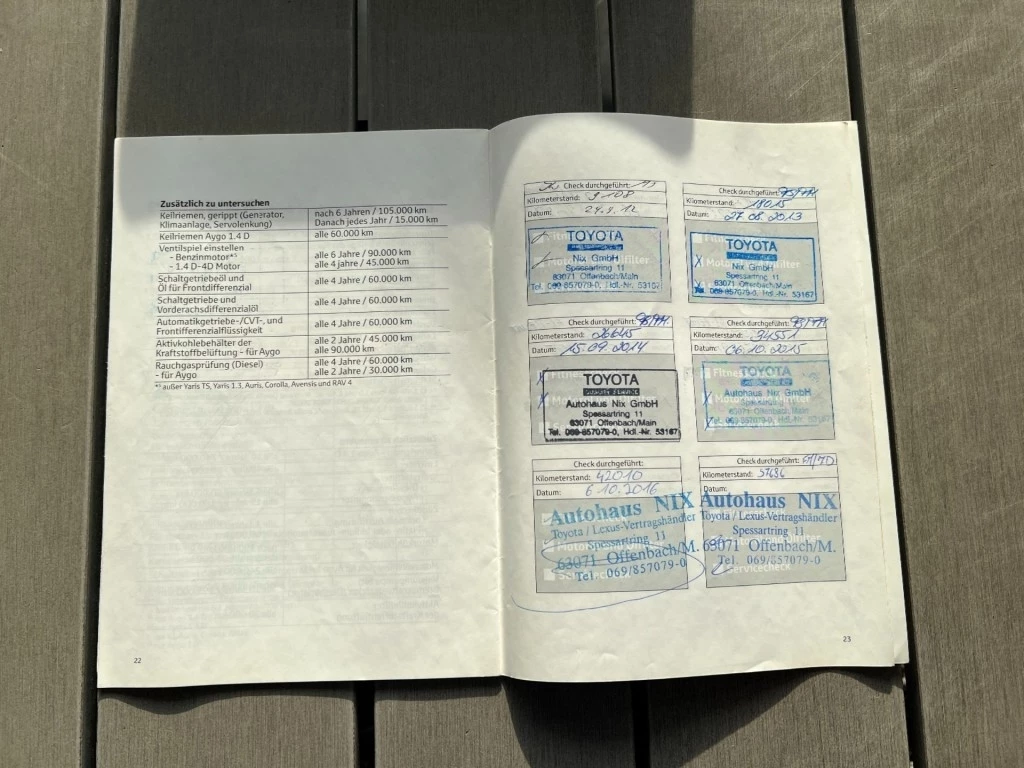 Zusätzlich zu untersuchen
Keilriemen, gerippt (Generator, Klimaanlage, Servolenkung)
nach 6 Jahren / 105.000 km
Danach jedes Jahr / 15.000 km
Keilriemen Aygo 1.4 D
alle 60.000 km
Ventilspiel einstellen
- Benzinmotor*⁾
alle 6 Jahre / 90.000 km
- 1.4 D-4D Motor
alle 4 Jahre / 45.000 km
Schaltgetriebeöl und
Öl für Frontdifferenzial
alle 4 Jahre / 60.000 km
Schaltgetriebe und
Vorderachsdifferenzialöl
alle 4 Jahre / 60.000 km
Automatikgetriebe-/CVT-, und
Frontifferenzialflüssigkeit
alle 4 Jahre / 60.000 km
Aktivkohlebehälter der
Kraftstoffbelüftung - für Aygo
alle 2 Jahre / 45.000 km
alle 90.000 km
Rauchgasprüfung (Diesel)
- für Aygo
alle 4 Jahre / 60.000 km
alle 2 Jahre / 30.000 km
*⁾ außer Yaris TS, Yaris 1.3, Auris, Corolla, Avensis und RAV 4
22
Check durchgeführt:
Kilometerstand: 9108
Datum: 24.9.12
TOYOTA
Nix GmbH
Spessartring 11
63071 Offenbach/Main
Tel. 069-857079-0, Hdl.-Nr. 53167
Check durchgeführt:
Kilometerstand: 18015
Datum: 27.08.2013
TOYOTA
Nix GmbH
Spessartring 11
63071 Offenbach/Main
Tel. 069-857079-0, Hdl.-Nr. 53167
Check durchgeführt:
Kilometerstand: 26615
Datum: 15.09.2014
TOYOTA
Autohaus Nix GmbH
Spessartring 11
63071 Offenbach/Main
Tel. 069-857079-0, Hdl.-Nr. 53167
Check durchgeführt:
Kilometerstand: 34551
Datum: 06.10.2015
TOYOTA
Autohaus Nix GmbH
Spessartring 11
63071 Offenbach/Main
Check durchgeführt:
Kilometerstand: 42010
Datum: 6.10.2016
Autohaus NIX
Toyota / Lexus-Vertragshändler
Spessartring 11
63071 Offenbach/M.
Tel. 069/857079-0
Check durchgeführt:
Kilometerstand: 51686
Datum:
Autohaus NIX
Toyota / Lexus-Vertragshändler
Spessartring 11
63071 Offenbach/M.
Tel. 069/857079-0
Servicecheck
23